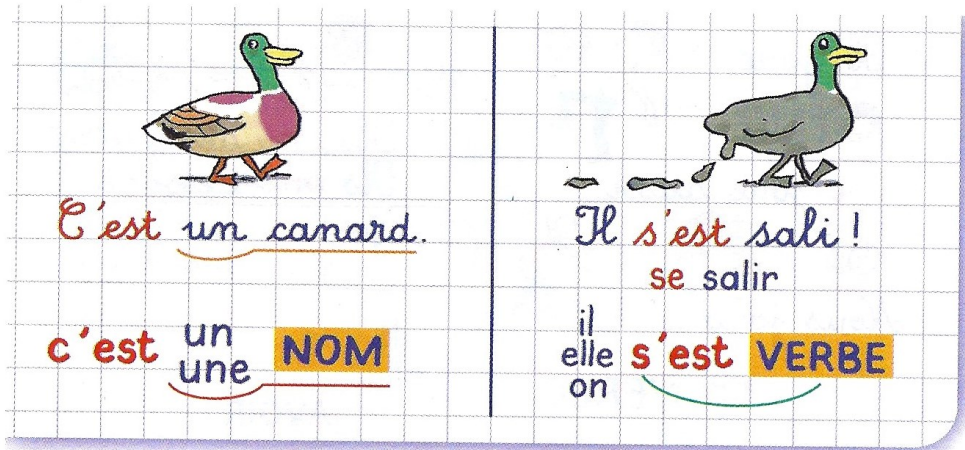 C'est un canard.
c'est un une NOM
Il s'est sali !
se salir
il
elle s'est VERBE
on